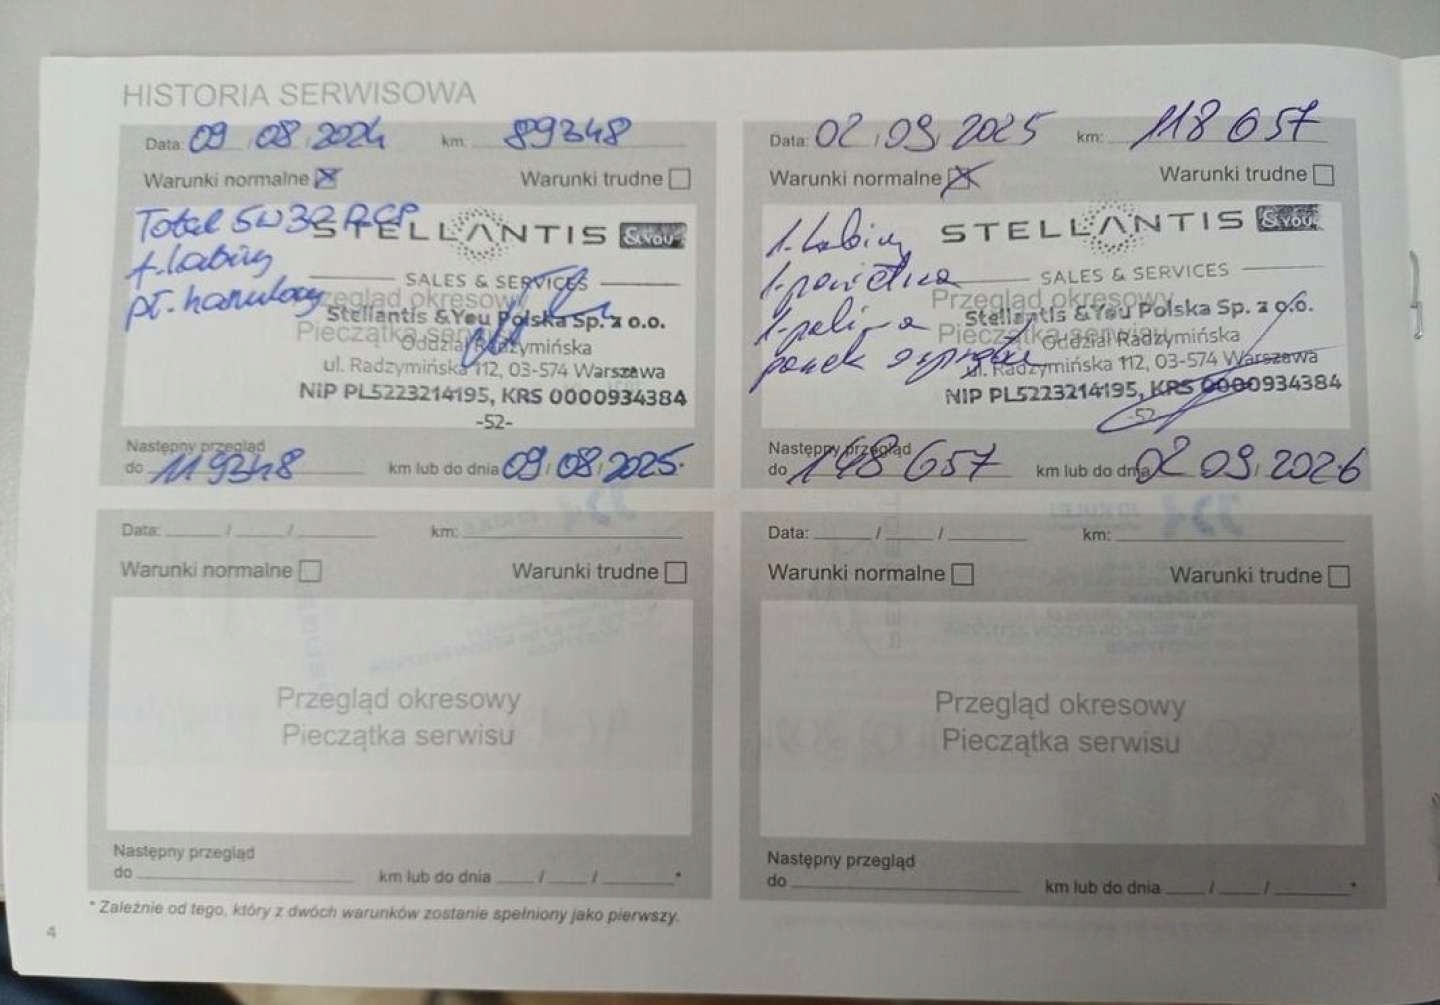 HISTORIA SERWISOWA
Data: 09 / 08 / 2024 km: 89348
Warunki normalne Warunki trudne
Total 5W30
f. kabiny
pł. hamulcowy
STELLANTIS &YOU
SALES & SERVICES
Przegląd okresowy
Stellantis &You Polska Sp. z o.o.
Pieczątka serwisu
Oddział Radzymińska
ul. Radzymińska 112, 03-574 Warszawa
NIP PL5223214195, KRS 0000934384
-52-
Następny przegląd
do 119348 km lub do dnia 09 / 08 / 2025
Data: 02 / 09 / 2025 km: 118 657
Warunki normalne Warunki trudne
f. kabiny
f. powietrza
f. paliwa
pasek osprzętu
STELLANTIS &YOU
SALES & SERVICES
Przegląd okresowy
Stellantis &You Polska Sp. z o.o.
Pieczątka serwisu
Oddział Radzymińska
ul. Radzymińska 112, 03-574 Warszawa
NIP PL5223214195, KRS 0000934384
-52-
Następny przegląd
do 148 657 km lub do dnia 02 / 09 / 2026
Data: / / km:
Warunki normalne Warunki trudne
Przegląd okresowy
Pieczątka serwisu
Następny przegląd
do km lub do dnia / / *
Data: / / km:
Warunki normalne Warunki trudne
Przegląd okresowy
Pieczątka serwisu
Następny przegląd
do km lub do dnia / / *
* Zależnie od tego, który z dwóch warunków zostanie spełniony jako pierwszy.
4